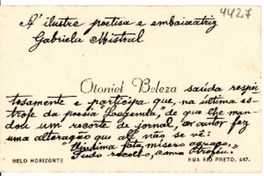 4427
A' ilustre poetisa e embaixatriz
Gabriela Mistral
Otoniel Beleza saúda respei-
tosamente e participa que, na última es-
trofe da poesia Legenda, de que lhe man-
dou um recorte de jornal, o autor fez
uma alteração que ali não se vê:
"Undíma fata, mísero
Tudo recebo, alma
BELO HORIZONTE
RUA RIO PRETO, 647.